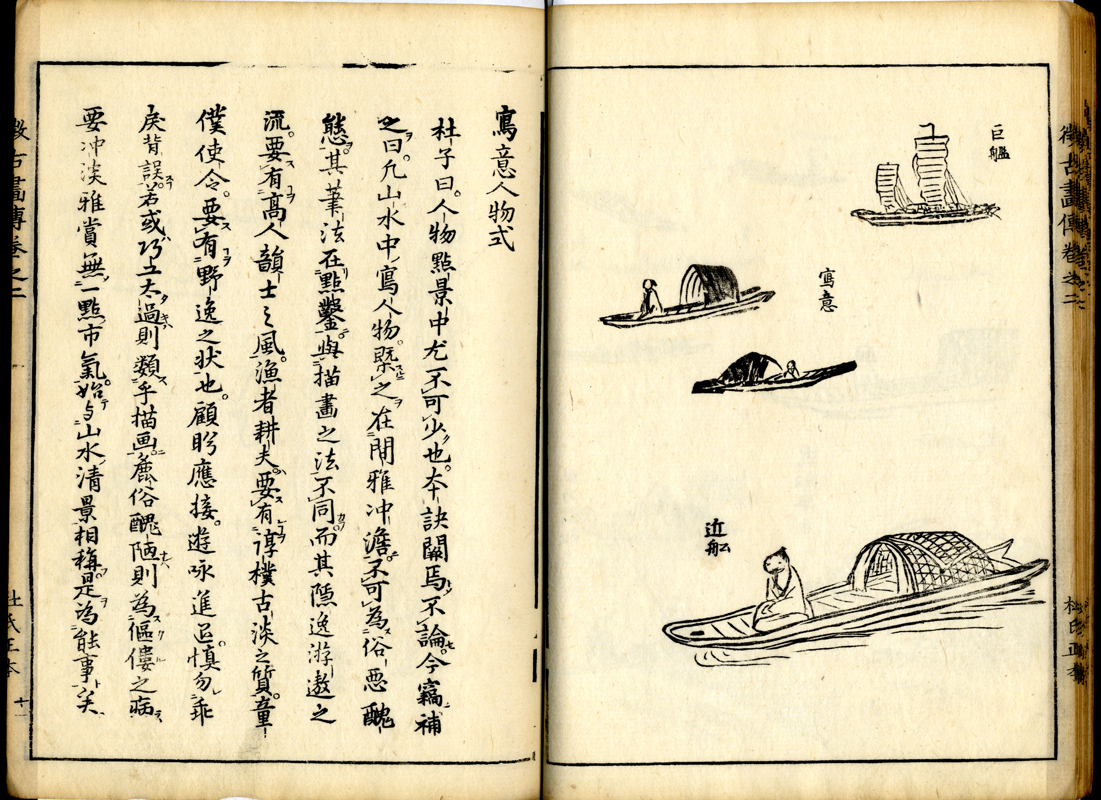 徴古畫傳卷之二
杜氏正本
巨艦
寫意
近舩
寫意人物式
杜子曰。人物點景中尤不可少也。本訣闕焉不論。今竊補
之曰。凢山水中寫人物。槩之在閒雅冲澹。不可為俗悪醜
態。其筆法在點鑿。與描畫之法不同。而其隠逸游遨之
流。要有髙人韻士之風。漁者耕夫。要有淳樸古淡之質。童
僕使令。要有野逸之状也。顧盻應接。遊咏進退。慎勿乖
戾背誤。若或巧工太過則類乎描画。麁俗醜陋則為傴僂之病
要冲淡雅賞無一點市氣。始与山水清景相稱。是為能事矣
徴古畫傳卷之二
杜氏正本